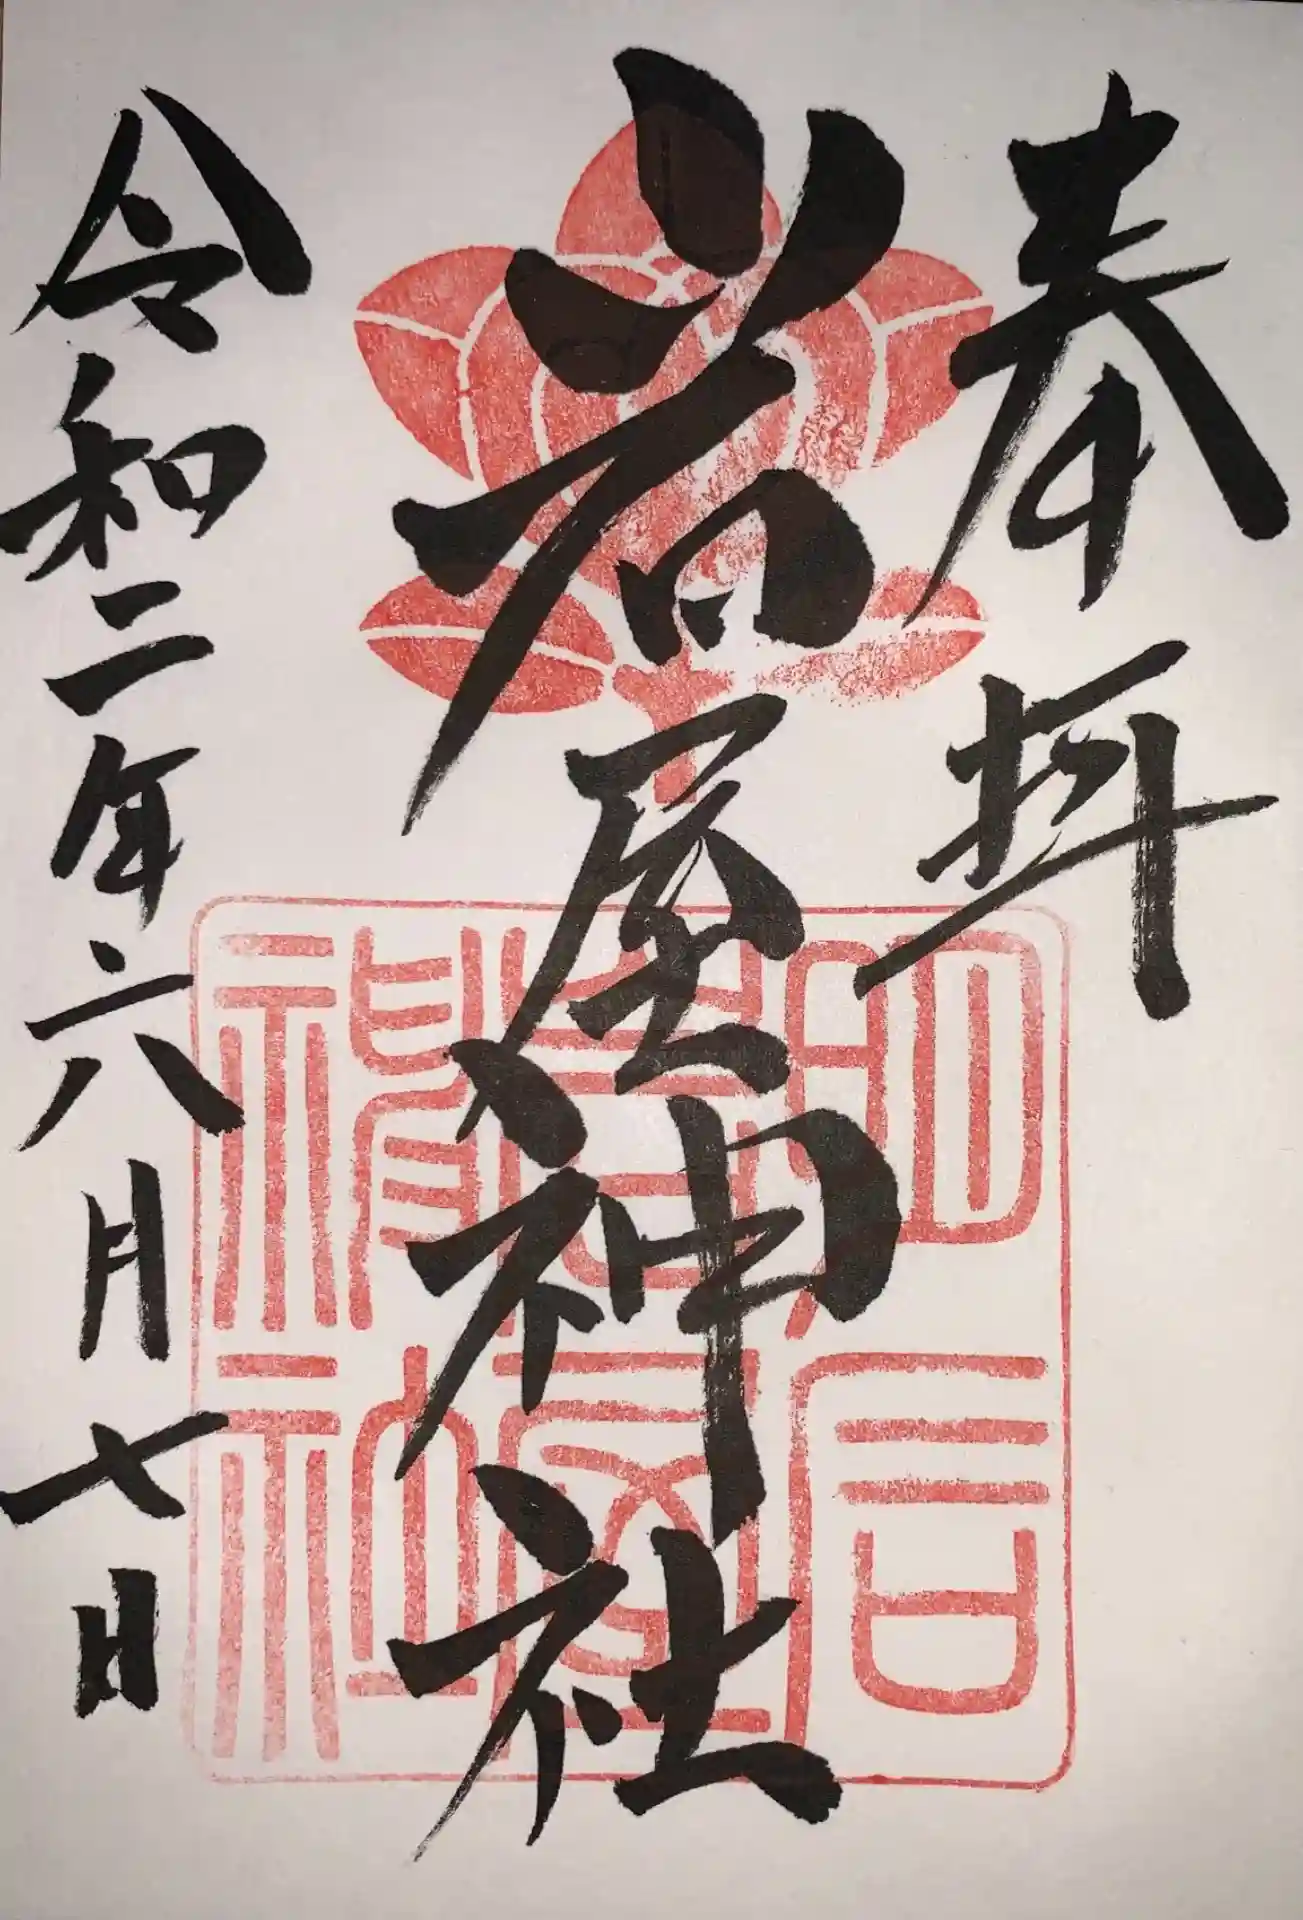 奉拝
岩屋神社
令和二年六月七日
明石
岩屋
神社